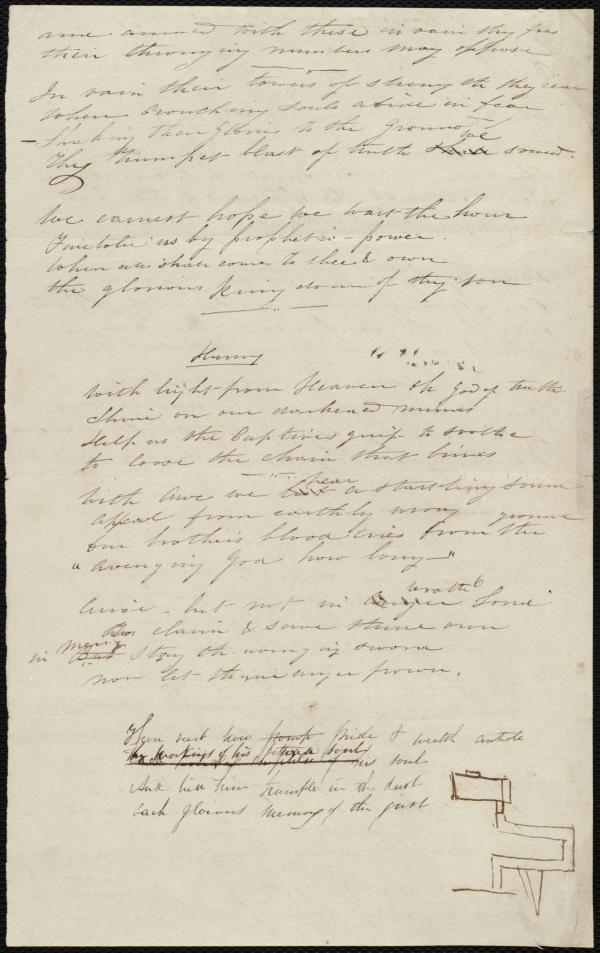 and armed with these in vain thy foes
their thronging numbers may oppose
In vain their towers of strength they rear
When crouching souls abide in fear
Shaking their glories to the ground
Thy trumpet blast of truth shall sound.
We earnest hope we wait the hour
Foretold us by prophetic power
When all shall come to thee & own
the glorious kingdom of thy son
Hymn
With light from Heaven oh God of truth
Shine on our darkened minds
Help us the Captives grief to soothe
to loose the chain that binds
hear
With awe we a startling sound
appeal from earthly wrong
ground
Our brothers blood cries from the
"avenging God how long"
wrath
Arise - but not in anger Lord
claim & save thine own
in mercy But stay the avenging sword
nor let thine anger frown.
Thou seest how pomp pride & wealth
the workings of his soul
of his soul
And bid him trample in the dust
each glorious memory of the just